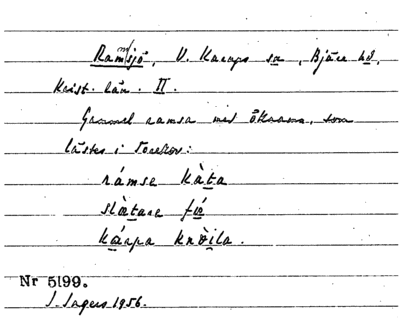 Ramsjö, V. Karaps sn, Bjäre hd,
Krist. län. II.
Gammal ramsa med öknamn, som
lästes i Torekov:
rámse kàta
slàtare fù
kárpa knòila.
Nr 5199.
I. Ingers 1956.